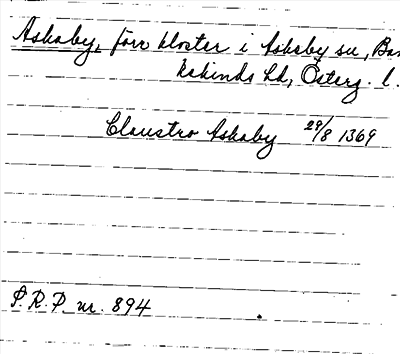 Askaby, förr kloster i Askeby sn, Ban
kekinds hd, Österg. l.
Claustro Askaby 29/8 1369
P.R.P. nr. 894